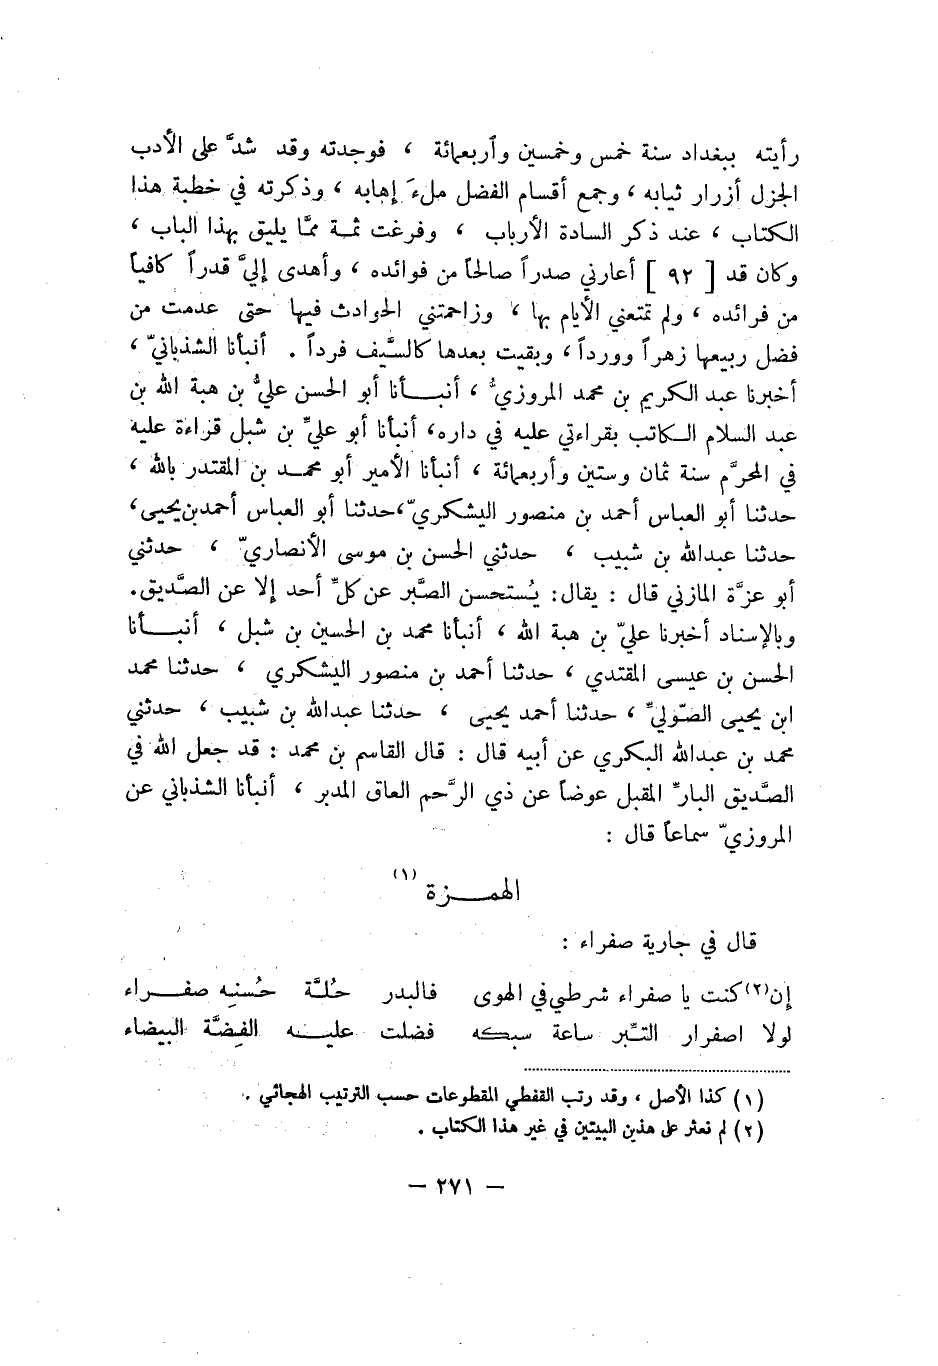 رأيته ببغداد سنة خمس وخمسين وأربعمائة ، فوجدته وقد شدَّ على الأدب
الجزل أزرار ثيابه ، وجمع أقسام الفضل ملءَ إهابه ، وذكرته في خطبة هذا
الكتاب ، عند ذكر السادة الأرباب ، وفرغت ثمة ممّا يليق بهذا الباب ،
وكان قد [ ٩٢ ] أعارني صدراً صالحاً من فوائده ، وأهدى إليَّ قدراً كافياً
من فرائده ، ولم تمتعني الأيام بها ، وزاحمتني الحوادث فيها حتى عدمت من
فضل ربيعها زهراً وورداً ، وبقيت بعدها كالسَّيف فرداً . أنبأنا الشذبانيّ ،
أخبرنا عبد الكريم بن محمد المروزيُّ ، أنبـــأنا أبو الحسن عليُّ بن هبة الله بن
عبد السلام الكاتب بقراءتي عليه في داره، أنبأنا أبو عليِّ بن شبل قراءة عليه
في المحرَّم سنة ثمان وستين وأربعمائة ، أنبأنا الأمير أبو محمـد بن المقتدر بالله ،
حدثنا أبو العباس أحمد بن منصور اليشكريّ،حدثنا أبو العباس أحمدبن يحيى،
حدثنا عبدالله بن شبيب ، حدثني الحسن بن موسى الأنصاريّ ، حدثني
أبو عزَّة المازني قال : يقال: يُستحسن الصَّبر عن كلِّ أحد إلا عن الصَّديق.
وبالإسناد أخبرنا عليّ بن هبة الله ، أنبأنا محمد بن الحسين بن شبل ، أنبـــأنا
الحسن بن عيسى المقتدي ، حدثنا أحمد بن منصور اليشكري ، حدثنا محمد
ابن يحيى الصّوليِّ ، حدثنا أحمد يحيى ، حدثنا عبدالله بن شبيب ، حدثني
محمد بن عبدالله البكري عن أبيه قال : قال القاسم بن محمد : قد جعل الله في
الصَّديق البارِّ المقبل عوضاً عن ذي الرَّحم العاق المدبر ، أنبأنا الشذباني عن
المروزيّ سماعاً قال :
الهمـــزة (١)
قال في جارية صفراء :
إن(٢)كنت يا صفراء شرطي في الهوى فالبدر حُلَّة حُسنِه صفـــراء
لولا اصفرار التّبر ساعة سبكه فضلت عليـــه الفِضَّة البيضاء
(١) كذا الأصل ، وقد رتب القفطي المقطوعات حسب الترتيب الهجائي .
(٢) لم نعثر على هذين البيتين في غير هذا الكتاب .
— ٢٧١ —